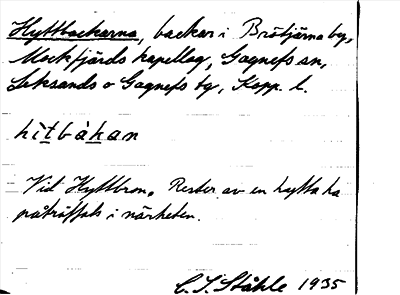 Hyttbackarna, backar i Brötjärna by,
Mockfjärds kapellag, Gagnefs sn,
Leksands o Gagnefs tg, Kopp. l.
hìtbàkan
Vid Hyttbron. Rester av en hytta ha
påträffats i närheten.
C. I. Ståhle 1935